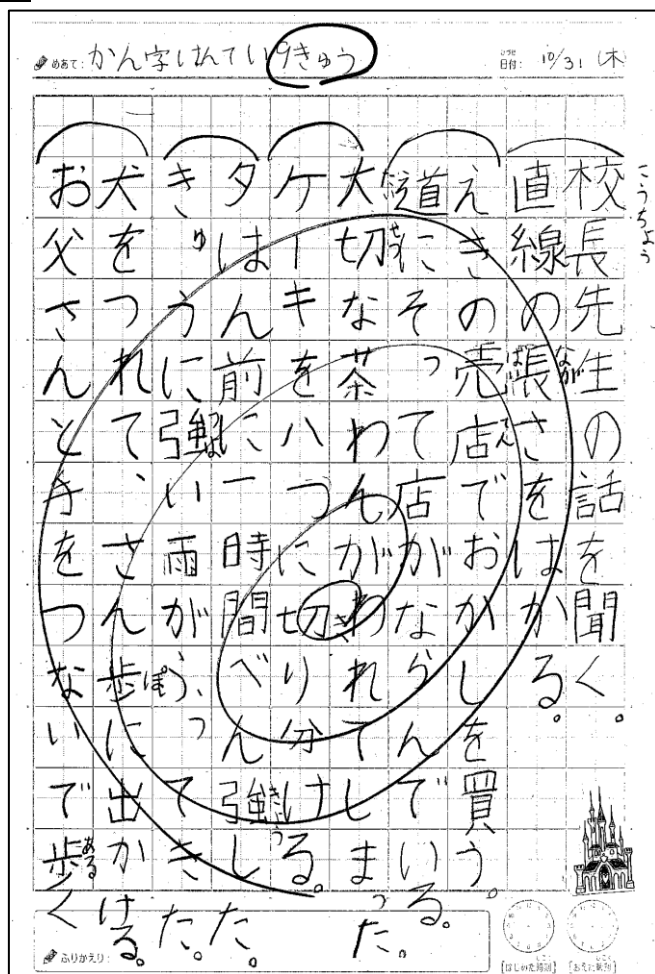 めあて：かん字けんてい9きゅう
日付： 10/31 (木
校長先生の話を聞く。
こうちょう
直線の長さをはかる。
なが
えきの売店でおかしを買う。
ばい
てん
道にそって店がならんでいる。
大切なな茶わんがわれてしまった。
せつ
ケーキを八つに切り分ける。
き
夕はん前に一時間べん強した。
きょう
きゅうに強い雨がふってきた。
つよ
犬をつれて、さん歩に出かける。
ぽ
お父さんと手をつないで歩く
ある
ふりかえり：
[はじめた時刻]
[おえた時刻]